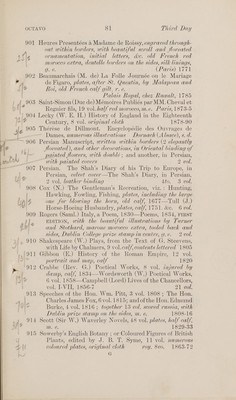 OCTAVO 81 Third Day
901 Heures Presentées à Madame de Raissy, engraved through-
out within borders, with beautiful scroll and flowered
ornamentation, initial letters, &c. old French red
morocco extra, dentelle borders on the sides, silk linings,
g. e. (Paris) 1771
902 Boscomarchais (M. de) La Folle Journée ou le Mariage
de Figaro, plates, after St. Quentin, by Malapeau and
Roi, old French calf gilt, r. e.
Palais Royal, chez Ruault, 1785
903 Saint-Simon (Duc de) Mémoires Publiés par MM. Cheruel et
Regnier fils, 19 vol. half red morocco, m. e. Paris, 1873-5
904 Lecky (W. E. H.) History of England in the Eighteenth
Century, 8 vol. original cloth 1878-90
905 Thérèse de Dillmont, Encyclopédie des Ouvrages de
Dames, numerous illustrations Dornach (Alsace), s. d.
906 Persian Manuscript, written within borders (2 elegantly
illuminated), and other decorations, in Oriental binding of
painted flowers, with double; and another, in Persian,
with painted covers 2 vol.
907 Persian. The Shah's Diary of his Trip to Europe, in
Persian, velvet cover—The Shah's Diary, in Persian,
2 vol. leather binding ib. 3 vol.
908 Cox (N.) The Gentleman's Recreation, viz.: Hunting,
Hawking, Fowling, Fishing, plates, including the large
one for blowing the horn, old calf, 1677—Tull (J.)
Horse-Hoeing Husbandry, plates, calf, 1751, &c. 6 vol.
909 Rogers (Saml.) Italy, a Poem, 1830—Poems, 1834, FIRST
EDITION, with the beautiful illustrations by Turner
and Stothard, maroon morocco extra, tooled back and
sides, Dublin College prize stamp in centre, g. e. 2 vol.
910 Shakespeare (W.) Plays, from the Text of G. Steevens,
with Life by Chalmers, 9 vol. calf, contents lettered 1805
911 Gibbon (E.) History of the Roman Empire, 12 vol.
portrait and map, calf 1820
912 Crabbe (Rev. G.) Poetical Works, 8 vol. injured by
damp, calf, 1834—Wordsworth (W.) Poetical Works,
6 vol. 1858—Campbell (Lord) Lives of the Chancellors,
vol. I-VII, 1856-7 21 vol.
913 Speeches of the Hon. Wm. Pitt, 3 vol. 1808; The Hon.
Charles James Fox, 6 vol. 1815; and of the Hon. Edmund
Burke, 4 vol. 1816; together 13 vol. sound russia, with
Dublin prize stamp on the sides, m. e. 1808-16
914 Scott (Sir W.) Waverley Novels, 48 vol. plates, half calf,
m. e. 1829-33
915 Sowerby's English Botany; or Coloured Figures of British
Plants, edited by J. B. T. Syme, 11 vol. numerous
coloured plates, original cloth roy. 8vo. 1863-72
G